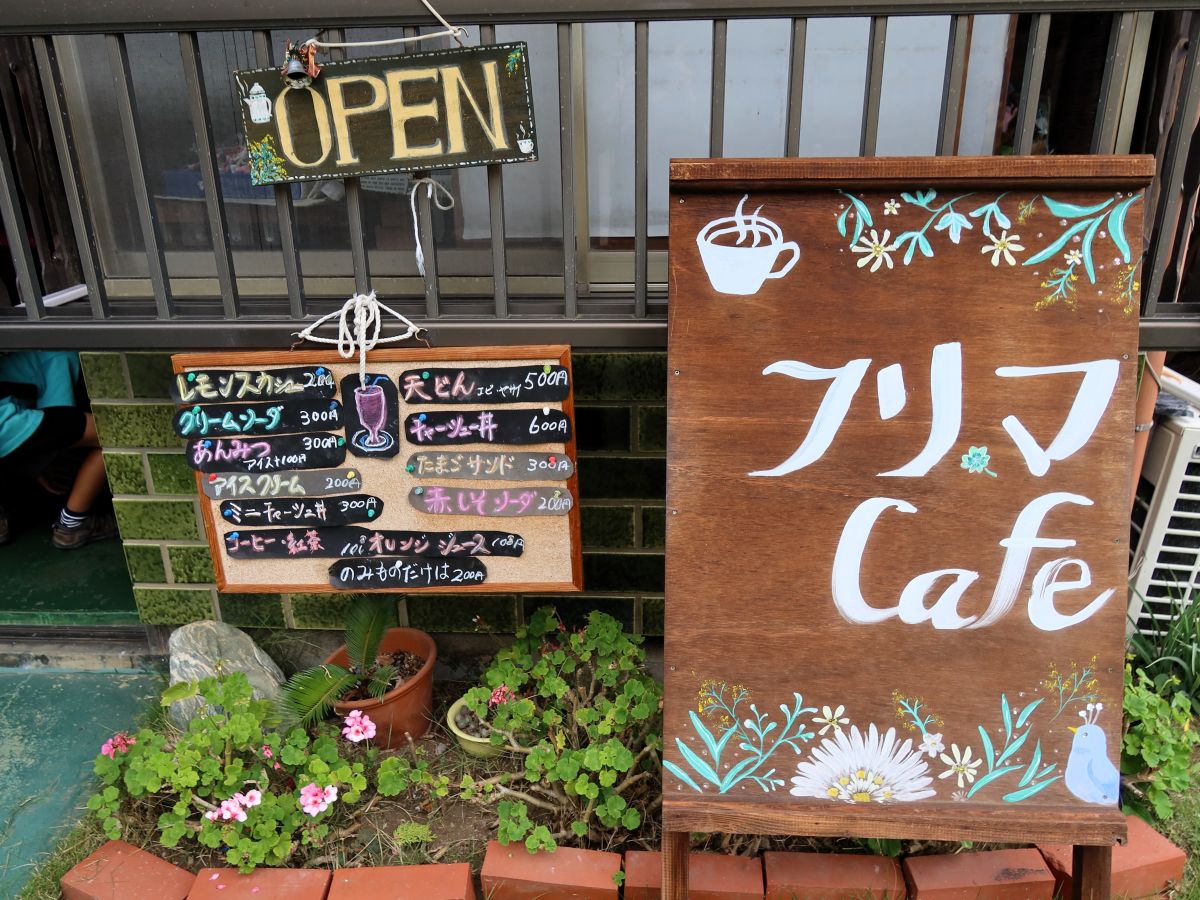 OPEN
レモンスカシュー 200
クリームソーダ 300円
あんみつ 300円
アイス+100円
アイスクリーム 200円
ミニチャーシュー丼 300円
コーヒー・紅茶 100
オレンジジュース 100円
のみものだけは200円
天どん エビ ヤサイ 500円
チャーシュー丼 600円
たまごサンド 300円
赤しそソーダ 200円
フリマ
Cafe